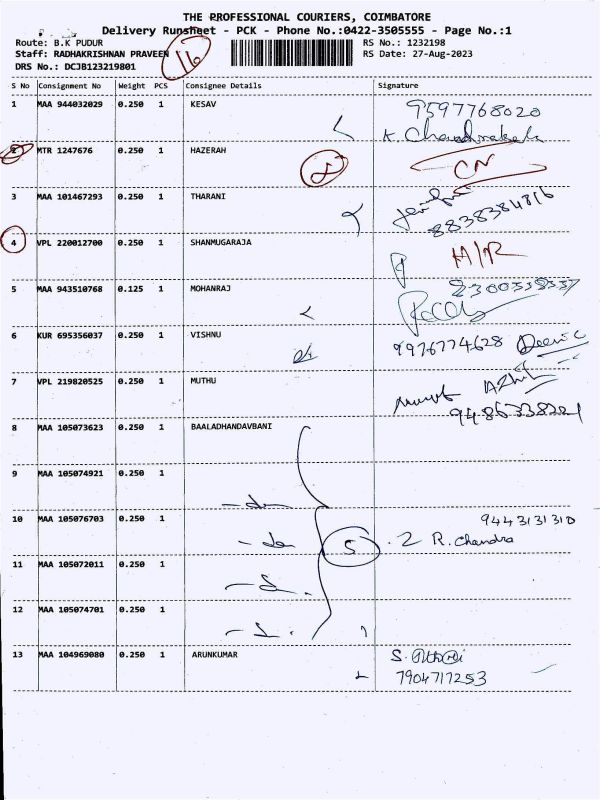 THE PROFESSIONAL COURIERS, COIMBATORE
Delivery Runsheet - PCK - Phone No.:0422-3505555 - Page No.:1
Route: B.K PUDUR RS No.: 1232198
Staff: RADHAKRISHNAN PRAVEEN 16 RS Date: 27-Aug-2023
DRS No.: DCJB123219801
S No Consignment No Weight PCS Consignee Details Signature
1 MAA 944032029 0.250 1 KESAV 9597768020
K. Chandrakala
2 MTR 1247676 0.250 1 HAZERAH CN
3 MAA 101467293 0.250 1 THARANI
8838384816
4 VPL 220012700 0.250 1 SHANMUGARAJA
5 MAA 943510768 0.125 1 MOHANRAJ
6 KUR 695356037 0.250 1 VISHNU 9976774628
7 VPL 219820525 0.250 1 MUTHU
8 MAA 105073623 0.250 1 BAALADHANDAVBANI
9 MAA 105074921 0.250 1
10 MAA 105076703 0.250 1 9443131310
5 2 R. Chandra
11 MAA 105072011 0.250 1
12 MAA 105074701 0.250 1
13 MAA 104969080 0.250 1 ARUNKUMAR
7904717253